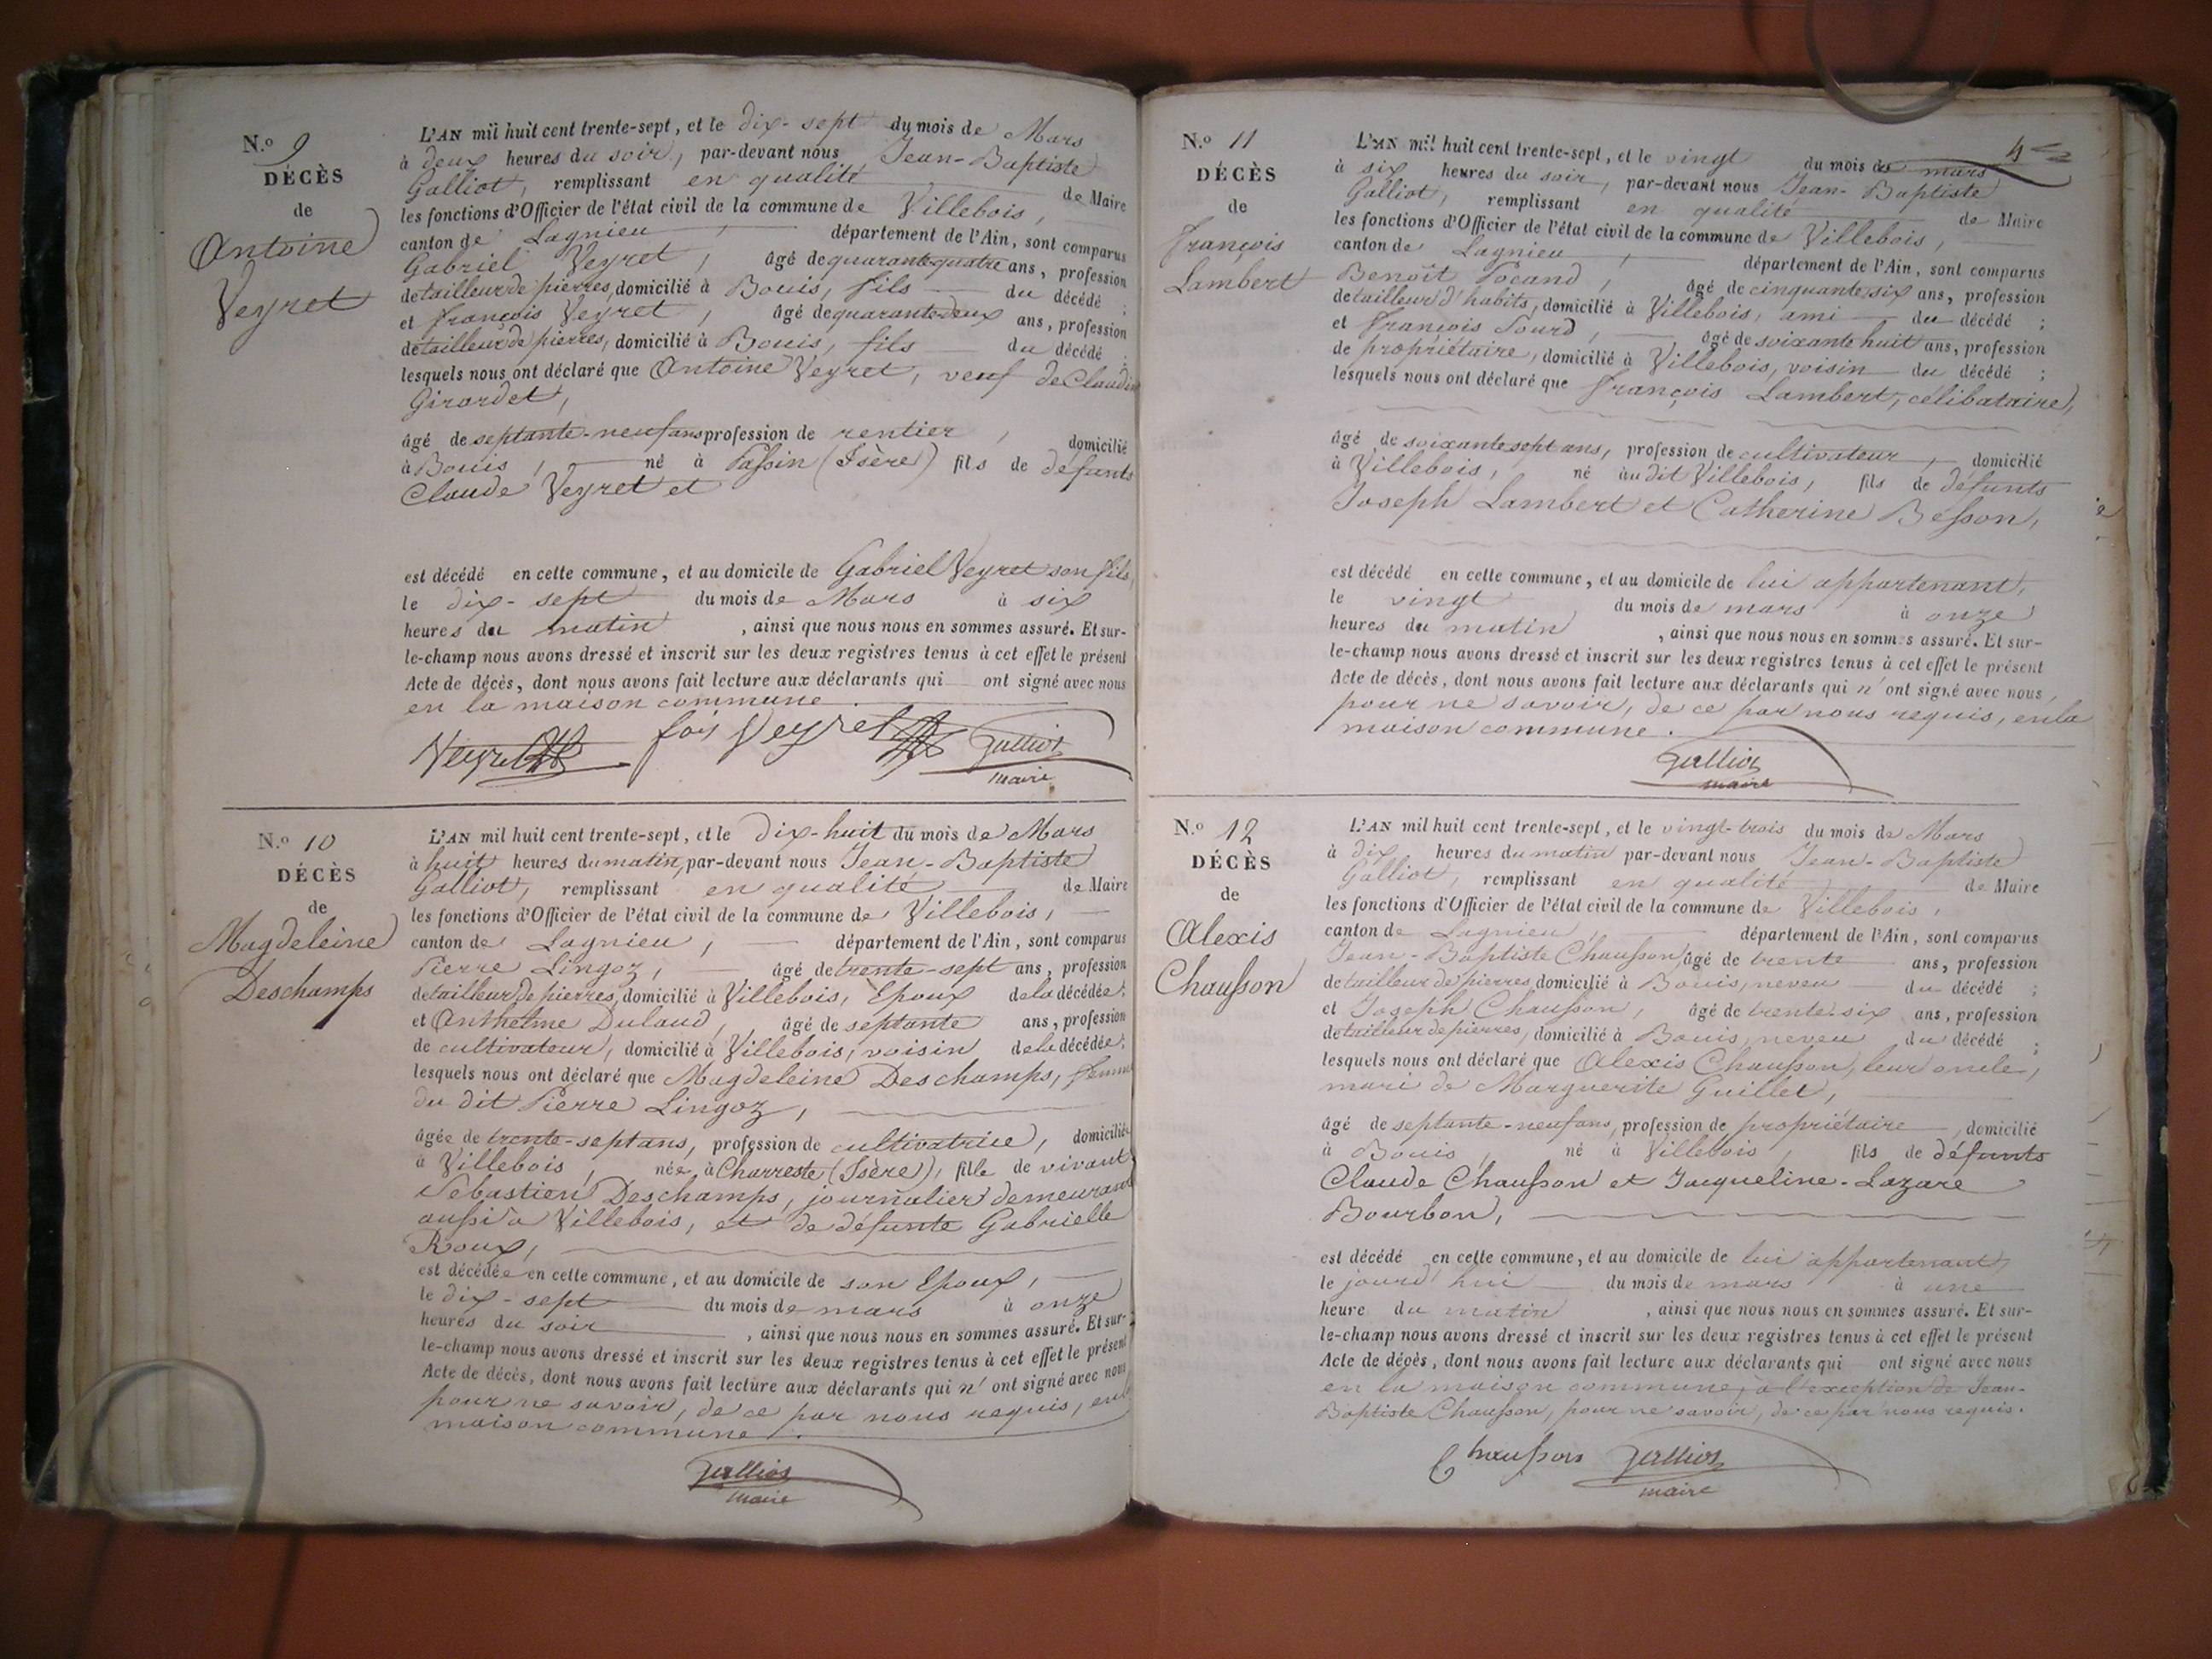 N.º 9
DÉCÈS
de
Antoine
Veyret
L'AN mil huit cent trente-sept, et le dix-sept du mois de Mars
à deux heures du soir, par-devant nous Jean-Baptiste
Galliot, remplissant en qualité de Maire
les fonctions d'Officier de l'état civil de la commune de Villebois,
canton de Lagnieu, département de l'Ain, sont comparus
Gabriel Veyret, âgé de quarante quatre ans, profession
de tailleur de pierres, domicilié à Bouis, fils du décédé ;
et françois Veyret, âgé de quarante-deux ans, profession
de tailleur de pierres, domicilié à Bouis, fils du décédé ;
lesquels nous ont déclaré que Antoine Veyret, veuf de Claudine
Girardet,
âgé de septante-neuf ans profession de rentier, domicilié
à Bouis, né à Passin (Isère) fils de défunts
Claude Veyret et
est décédé en cette commune, et au domicile de Gabriel Veyret son fils,
le dix-sept du mois de Mars à six
heures du matin, ainsi que nous nous en sommes assuré. Et sur-
le-champ nous avons dressé et inscrit sur les deux registres tenus à cet effet le présent
Acte de décès, dont nous avons fait lecture aux déclarants qui ont signé avec nous
en la maison commune.
Veyret fois Veyret Galliot
maire
N.º 10
DÉCÈS
de
Magdeleine
Deschamps
L'AN mil huit cent trente-sept, et le dix-huit du mois de Mars
à huit heures du matin, par-devant nous Jean-Baptiste
Galliot, remplissant en qualité de Maire
les fonctions d'Officier de l'état civil de la commune de Villebois,
canton de Lagnieu, département de l'Ain, sont comparus
Pierre Lingoz, âgé de trente-sept ans, profession
de tailleur de pierres, domicilié à Villebois, Epoux de la décédée ;
et Anthelme Dulaud, âgé de septante ans, profession
de cultivateur, domicilié à Villebois, voisin de la décédée ;
lesquels nous ont déclaré que Magdeleine Deschamps, femme
du dit Pierre Lingoz,
âgée de trente-sept ans, profession de cultivatrice, domiciliée
à Villebois, née à Charreste (Isère), fille de vivant
Sébastien Deschamps, journalier demeurant
aussi à Villebois, et de défunte Gabrielle
Roux,
est décédée en cette commune, et au domicile de son Epoux,
le dix-sept du mois de mars à onze
heures du soir, ainsi que nous nous en sommes assuré. Et sur-
le-champ nous avons dressé et inscrit sur les deux registres tenus à cet effet le présent
Acte de décès, dont nous avons fait lecture aux déclarants qui n'ont signé avec nous
pour ne savoir, de ce par nous requis, en la
maison commune.
Galliot
maire
4
N.º 11
DÉCÈS
de
François
Lambert
L'AN mil huit cent trente-sept, et le vingt du mois de mars
à six heures du soir, par-devant nous Jean-Baptiste
Galliot, remplissant en qualité de Maire
les fonctions d'Officier de l'état civil de la commune de Villebois,
canton de Lagnieu, département de l'Ain, sont comparus
Benoît Pocand, âgé de cinquante six ans, profession
de tailleur d'habits, domicilié à Villebois, ami du décédé ;
et François Sourd, âgé de soixante huit ans, profession
de propriétaire, domicilié à Villebois, voisin du décédé ;
lesquels nous ont déclaré que françois Lambert, célibataire,
âgé de soixante sept ans, profession de cultivateur, domicilié
à Villebois, né au dit Villebois, fils de défunts
Joseph Lambert et Catherine Besson,
est décédé en cette commune, et au domicile de lui appartenant,
le vingt du mois de mars à onze
heures du matin, ainsi que nous nous en sommes assuré. Et sur-
le-champ nous avons dressé et inscrit sur les deux registres tenus à cet effet le présent
Acte de décès, dont nous avons fait lecture aux déclarants qui n'ont signé avec nous,
pour ne savoir, de ce par nous requis, en la
maison commune.
Galliot
maire
N.º 12
DÉCÈS
de
Alexis
Chausson
L'AN mil huit cent trente-sept, et le vingt-trois du mois de Mars
à dix heures du matin par-devant nous Jean-Baptiste
Galliot, remplissant en qualité de Maire
les fonctions d'Officier de l'état civil de la commune de Villebois,
canton de Lagnieu, département de l'Ain, sont comparus
Jean-Baptiste Chausson, âgé de trente ans, profession
de tailleur de pierres, domicilié à Bouis, neveu du décédé ;
et Joseph Chausson, âgé de trente-six ans, profession
de tailleur de pierres, domicilié à Bouis, neveu du décédé ;
lesquels nous ont déclaré que Alexis Chausson, leur oncle,
mari de Marguerite Guillet,
âgé de septante-neuf ans, profession de propriétaire, domicilié
à Bouis, né à Villebois, fils de défunts
Claude Chausson et Jacqueline-Lazare
Bourbon,
est décédé en cette commune, et au domicile de lui appartenant,
le jourd'hui du mois de mars à une
heure du matin, ainsi que nous nous en sommes assuré. Et sur-
le-champ nous avons dressé et inscrit sur les deux registres tenus à cet effet le présent
Acte de décès, dont nous avons fait lecture aux déclarants qui ont signé avec nous
en la maison commune, à l'exception de Jean-
Baptiste Chausson, pour ne savoir, de ce par nous requis.
Chausson Galliot
maire